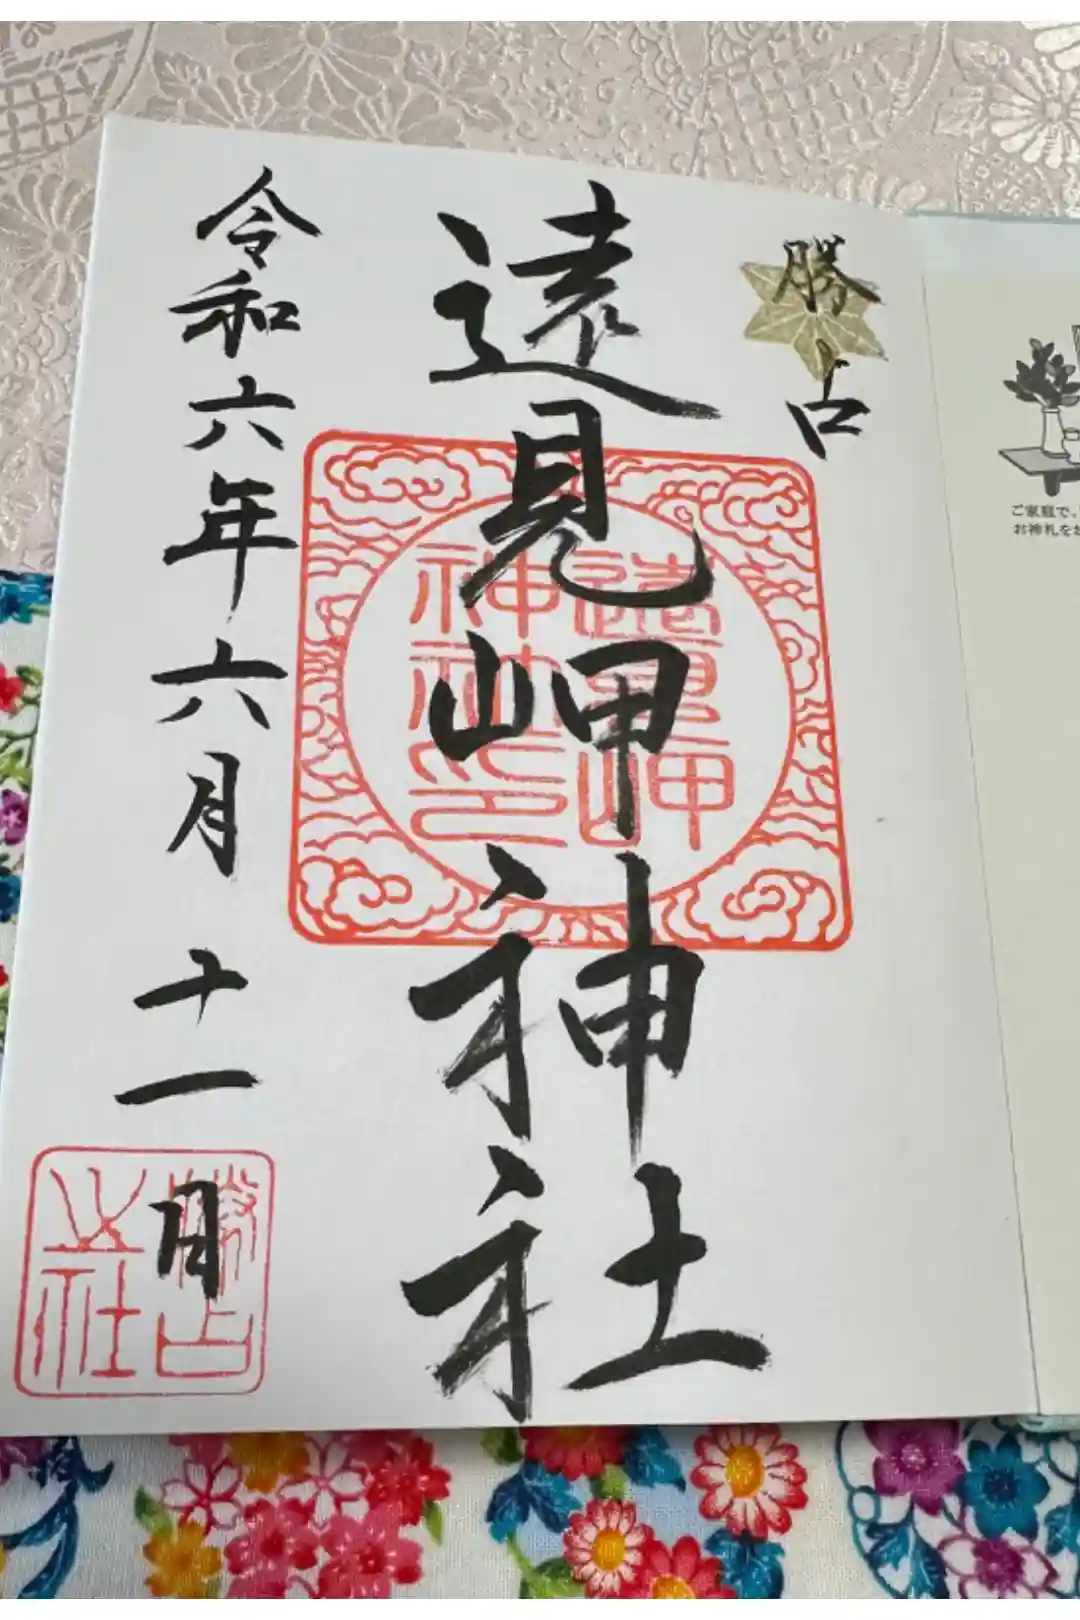 勝占
遠見岬神社
令和六年六月十一日
遠見岬
神社印
勝占
之社
ご家庭で、
お神札をお